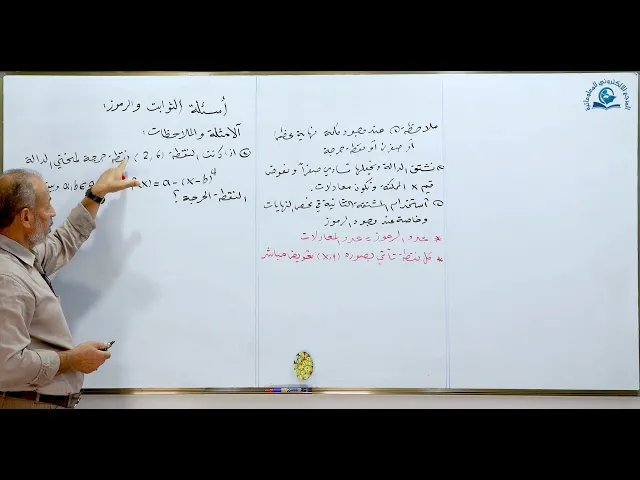 أسئلة الثوابت والرموز:
الأمثلة والملاحظات:
اذا كانت النقطة (2,6) نقطة حرجة لمنحني الدالة
(x) = a - (x-b)⁴ a,b ∈
النقطة الحرجة؟
ملاحظة ① عند وجود كلمة نهاية عظمى
أو صغرى أو نقطة حرجة
نشتق الدالة ونجعلها تساوي صفراً ونعوض
قيم x الممكنة وتكون معادلات.
استخدام المشتقة الثانية في فحص النهايات
وخاصة عند وجود الرموز
* عدد الرموز = عدد المعادلات
* كل نقطة تأتي بصورة (x,y) تعويض مباشر